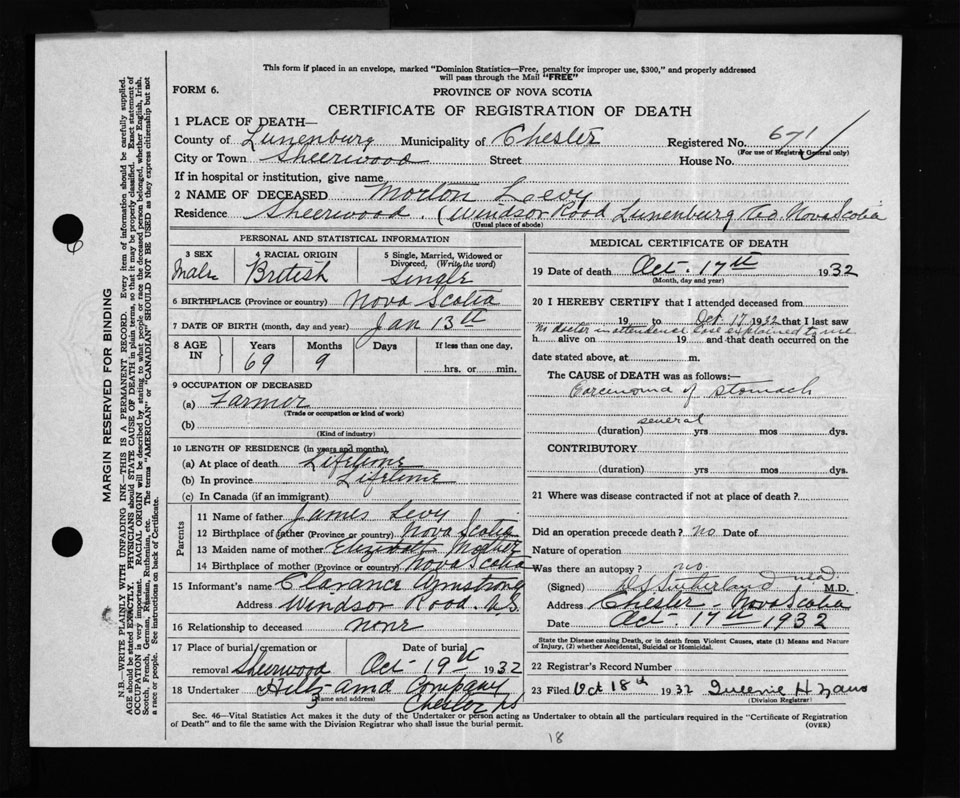 This form if placed in an envelope, marked "Dominion Statistics—Free, penalty for improper use, $300," and properly addressed
will pass through the Mail "FREE"
FORM 6.
PROVINCE OF NOVA SCOTIA
CERTIFICATE OF REGISTRATION OF DEATH
1 PLACE OF DEATH—
County of Lunenburg Municipality of Chester Registered No. 671
(For use of Registrar General only)
City or Town Sheerwood Street House No.
If in hospital or institution, give name
2 NAME OF DECEASED Morton Levy
Residence Sheerwood. (Windsor Road Lunenburg Co. Nova Scotia
(Usual place of abode)
PERSONAL AND STATISTICAL INFORMATION
3 SEX 4 RACIAL ORIGIN 5 Single, Married, Widowed or
Divorced, (Write the word)
Male British Single
6 BIRTHPLACE (Province or country) Nova Scotia
7 DATE OF BIRTH (month, day and year) Jan 13th
8 AGE IN Years Months Days If less than one day,
69 9 hrs. or min.
9 OCCUPATION OF DECEASED
(a) Farmer
(Trade or occupation or kind of work)
(b)
(Kind of industry)
10 LENGTH OF RESIDENCE (in years and months)
(a) At place of death Lifetime
(b) In province Lifetime
(c) In Canada (if an immigrant)
Parents
11 Name of father James Levy
12 Birthplace of father (Province or country) Nova Scotia
13 Maiden name of mother
14 Birthplace of mother (Province or country) Nova Scotia
15 Informant's name Clarance Armstrong
Address Windsor Road. N.S.
16 Relationship to deceased none
17 Place of burial, cremation or Date of burial
removal Sherwood Oct 19th 1932
18 Undertaker Hiltz and Company
(Name and address) Chester NS
MEDICAL CERTIFICATE OF DEATH
19 Date of death Oct. 17th 1932
(Month, day and year)
20 I HEREBY CERTIFY that I attended deceased from
19 to Oct 17 1932 that I last saw
No doctor in attendence case explained to me
h alive on 19 and that death occurred on the
date stated above, at m.
The CAUSE of DEATH was as follows:—
Carcinoma of stomach
several
(duration) yrs mos dys.
CONTRIBUTORY
(duration) yrs mos dys.
21 Where was disease contracted if not at place of death?
Did an operation precede death? no Date of
Nature of operation
Was there an autopsy? no.
(Signed) Sutherland M.D.
Address Chester Nova Scotia
Date Oct 17th 1932
State the Disease causing Death, or in death from Violent Causes, state (1) Means and Nature
of Injury, (2) whether Accidental, Suicidal or Homicidal.
22 Registrar's Record Number
23 Filed Oct 18th 1932 Queenie H
(Division Registrar)
Sec. 46—Vital Statistics Act makes it the duty of the Undertaker or person acting as Undertaker to obtain all the particulars required in the "Certificate of Registration
of Death" and to file the same with the Division Registrar who shall issue the burial permit. (OVER)
18
MARGIN RESERVED FOR BINDING
N.B.—WRITE PLAINLY WITH UNFADING INK—THIS IS A PERMANENT RECORD. Every item of information should be carefully supplied.
AGE should be stated EXACTLY. PHYSICIANS should STATE CAUSE OF DEATH in plain terms, so that it may be properly classified. Exact statement of
OCCUPATION is very important. RACIAL ORIGIN will be described by stating to what people or race the deceased person belonged, whether English, Irish,
Scotch, French, German, Russian, Ruthenian, etc. The terms "AMERICAN" or "CANADIAN" SHOULD NOT BE USED as they express citizenship but not
a race or people. See instructions on back of Certificate.